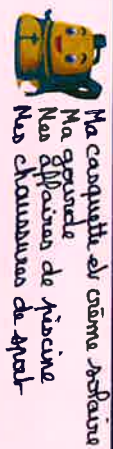 Ma casquette et crème solaire
Ma gourde
Mes affaires de piscine
Mes chaussures de sport